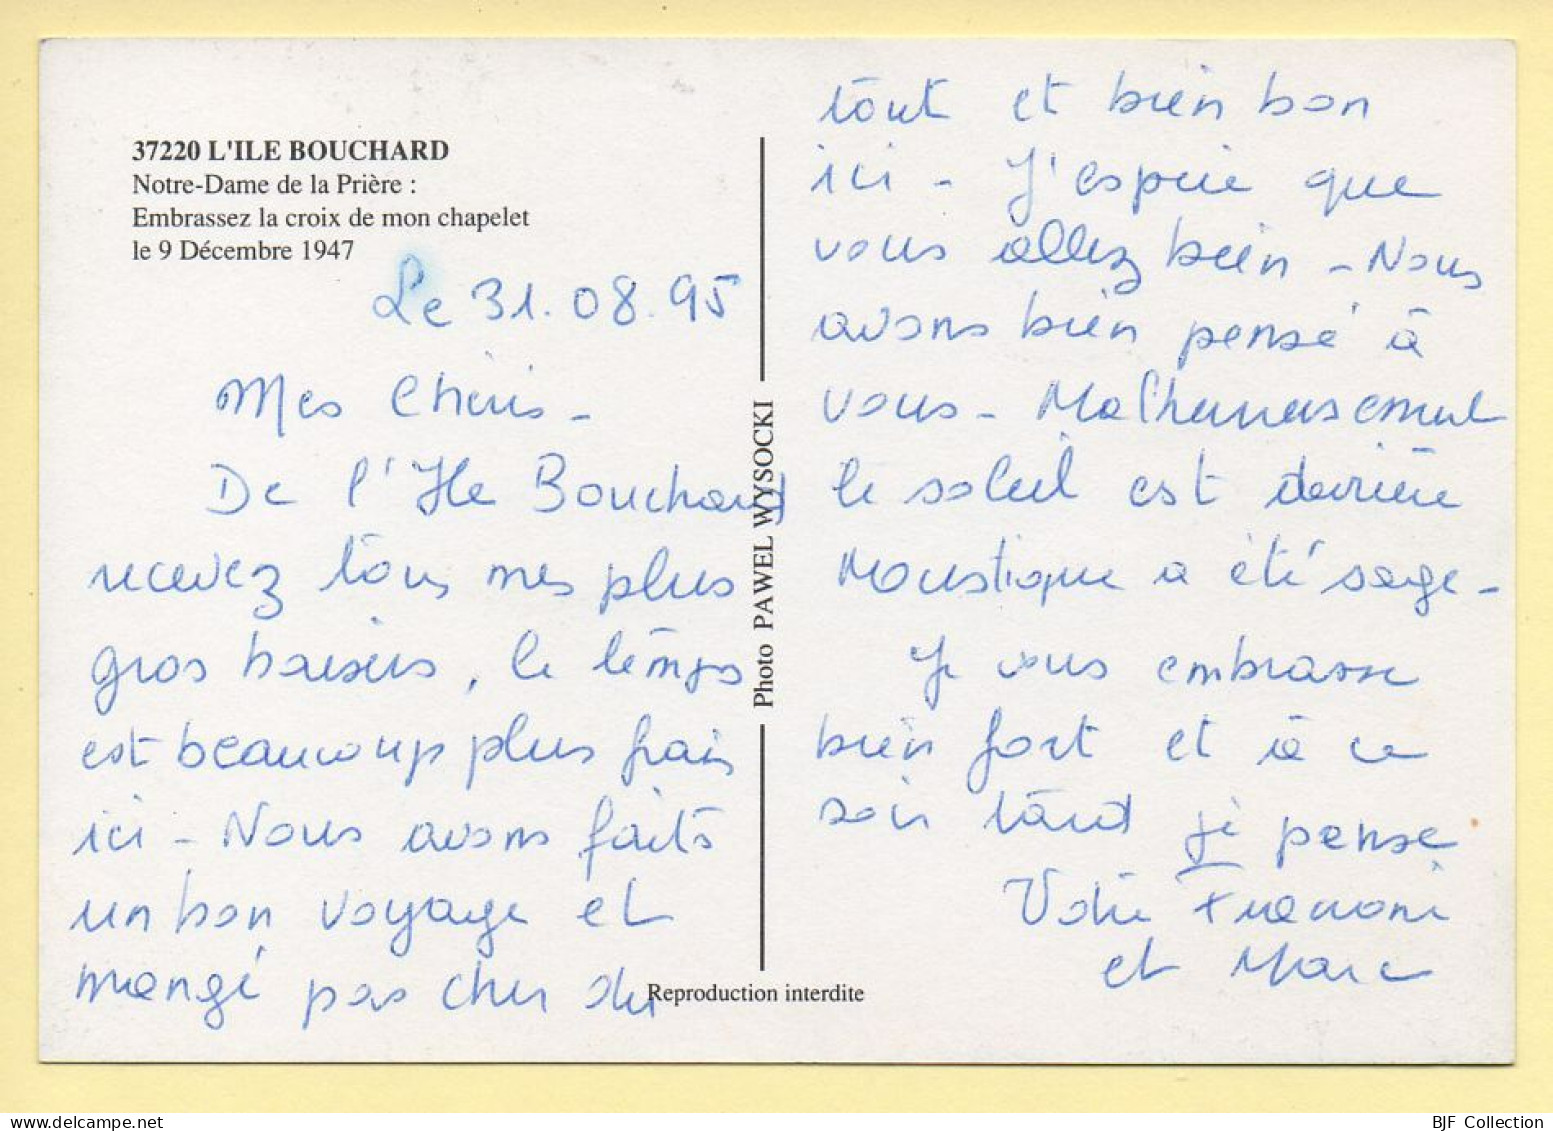 37220 L'ILE BOUCHARD
Notre-Dame de la Prière :
Embrassez la croix de mon chapelet
le 9 Décembre 1947
Le 31.08.95
Mes Chéris -
De l'Ile Bouchard
recevez tous mes plus
gros baisers, le temps
est beaucoup plus frais
ici - Nous avons faits
un bon voyage et
mangé pas cher du
tout et bien bon
ici - J'espère que
vous allez bien - Nous
avons bien pensé à
vous - Malheureusement
le soleil est derrière
Moustique a été sage -
Je vous embrasse
bien fort et à ce
soir tard je pense
Votre
et Marc
Photo PAWEL WYSOCKI
Reproduction interdite
BJF Collection